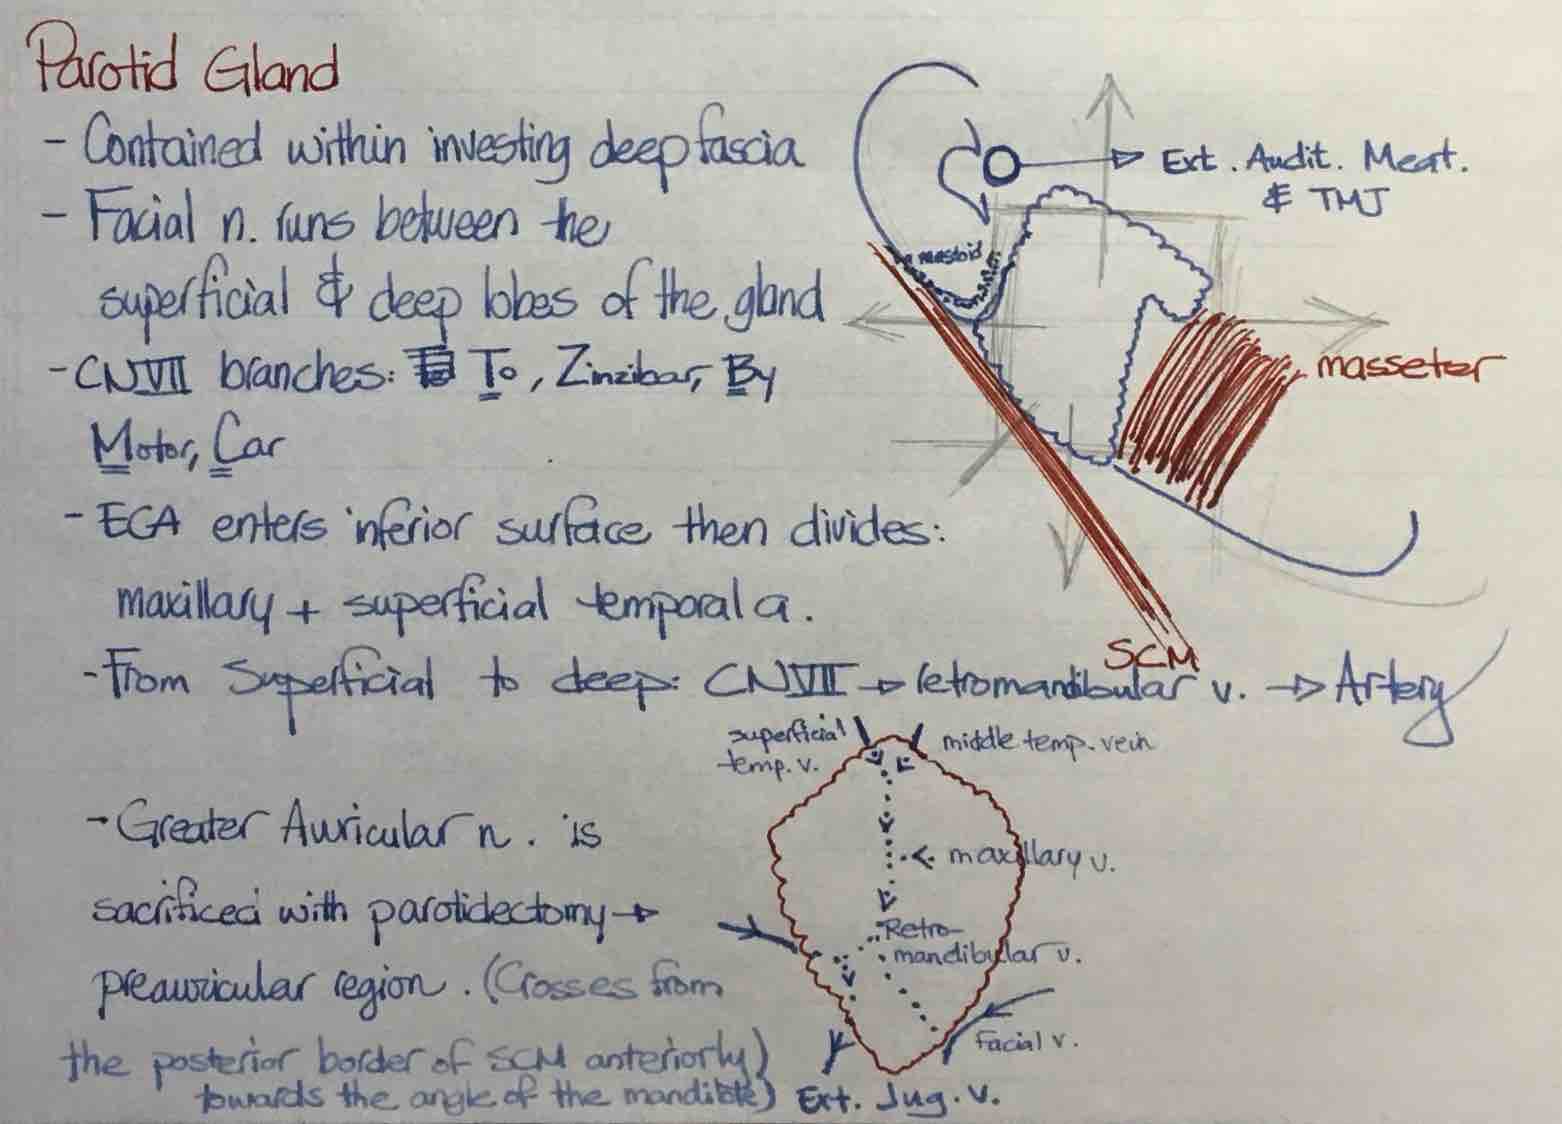 Parotid Gland
- Contained within investing deep fascia
- Facial n. runs between the
superficial & deep lobes of the gland
- CNVII branches: To, Zinzibar, By
Motor, Car
- ECA enters inferior surface then divides:
maxillary + superficial temporal a.
- From Superficial to deep: CNVII → retromandibular v. → Artery
- Greater Auricular n. is
sacrificed with parotidectomy →
preauricular region. (Crosses from
the posterior border of SCM anteriorly)
towards the angle of the mandible)
Ext. Audit. Meat.
& TMJ
mastoid
masseter
SCM
superficial
temp. v.
middle temp. vein
maxillary v.
Retro-
mandibular v.
Facial v.
Ext. Jug. v.